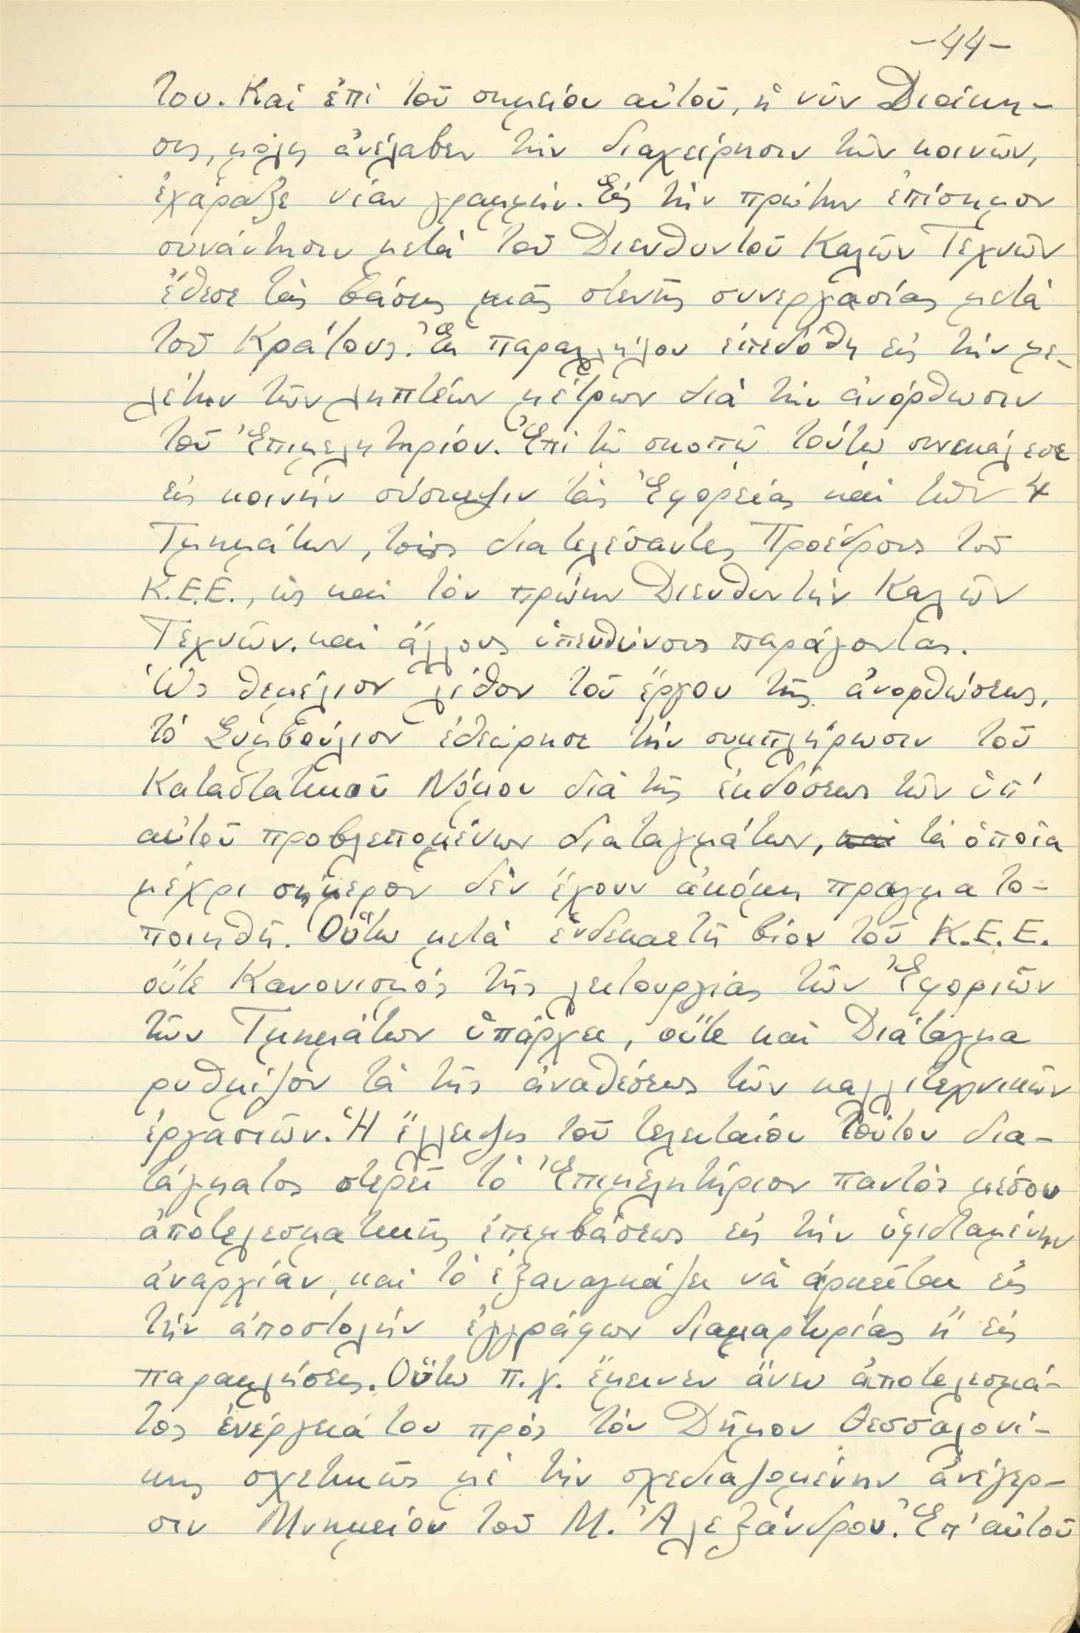 -44-
του. Καὶ ἐπὶ τοῦ σημείου αὐτοῦ, ἡ νῦν Διοίκη-
σις, μόλις ἀνέλαβεν τὴν διαχείρησιν τῶν κοινῶν,
ἐχάραξε νέαν γραμμήν. Εἰς τὴν πρώτην ἐπίσημον
συνάντησιν μετὰ τοῦ Διευθυντοῦ Καλῶν Τεχνῶν
ἔθεσε τὰς βάσεις μιᾶς στενῆς συνεργασίας μετὰ
τοῦ Κράτους. Ἐκ παραλλήλου ἐπεδόθη εἰς τὴν με-
λέτην τῶν ληπτέων μέτρων διὰ τὴν ἀνόρθωσιν
τοῦ Ἐπιμελητηρίου. Ἐπὶ τῷ σκοπῷ τούτῳ συνεκάλεσε
εἰς κοινὴν σύσκεψιν τὰς Ἐφορείας καὶ τῶν 4
Τμημάτων, τοὺς διατελέσαντες Προέδρους τοῦ
Κ.Ε.Ε., ὡς καὶ τὸν πρώην Διευθυντὴν Καλῶν
Τεχνῶν. καὶ ἄλλους ὑπευθύνους παράγοντας.
Ὡς θεμέλιον λίθον τοῦ ἔργου τῆς ἀνορθώσεως,
τὸ Συμβούλιον ἐθεώρησε τὴν συμπλήρωσιν τοῦ
Καταστατικοῦ Νόμου διὰ τῆς ἐκδόσεως τῶν ὑπ'
αὐτοῦ προβλεπομένων διαταγμάτων, καὶ τὰ ὁποῖα
μέχρι σήμερον δὲν ἔχουν ἀκόμη πραγματο-
ποιηθῆ. Οὕτω μετὰ ἑνδεκαετῆ βίον τοῦ Κ.Ε.Ε.
οὔτε Κανονισμὸς τῆς λειτουργίας τῶν Ἐφοριῶν
τῶν Τμημάτων ὑπάρχει, οὔτε καὶ Διάταγμα
ρυθμίζον τὰ τῆς ἀναθέσεως τῶν καλλιτεχνικῶν
ἐργασιῶν. Ἡ ἔλλειψις τοῦ τελευταίου τούτου δια-
τάγματος στερεῖ τὸ Ἐπιμελητήριον παντὸς μέσου
ἀποτελεσματικῆς ἐπεμβάσεως εἰς τὴν ὑφισταμένην
ἀναρχίαν, καὶ τὸ ἐξαναγκάζει νὰ ἀρκεῖται εἰς
τὴν ἀποστολὴν ἐγγράφων διαμαρτυρίας ἢ εἰς
παρακλήσεις. Οὕτω π.χ. ἔμεινεν ἄνευ ἀποτελεσμά-
τος ἐνέργειά του πρὸς τὸν Δῆμον Θεσσαλονί-
κης σχετικῶς μὲ τὴν σχεδιαζομένην ἀνέγερ-
σιν Μνημείου τοῦ Μ. Ἀλεξάνδρου. Ἐπ' αὐτοῦ